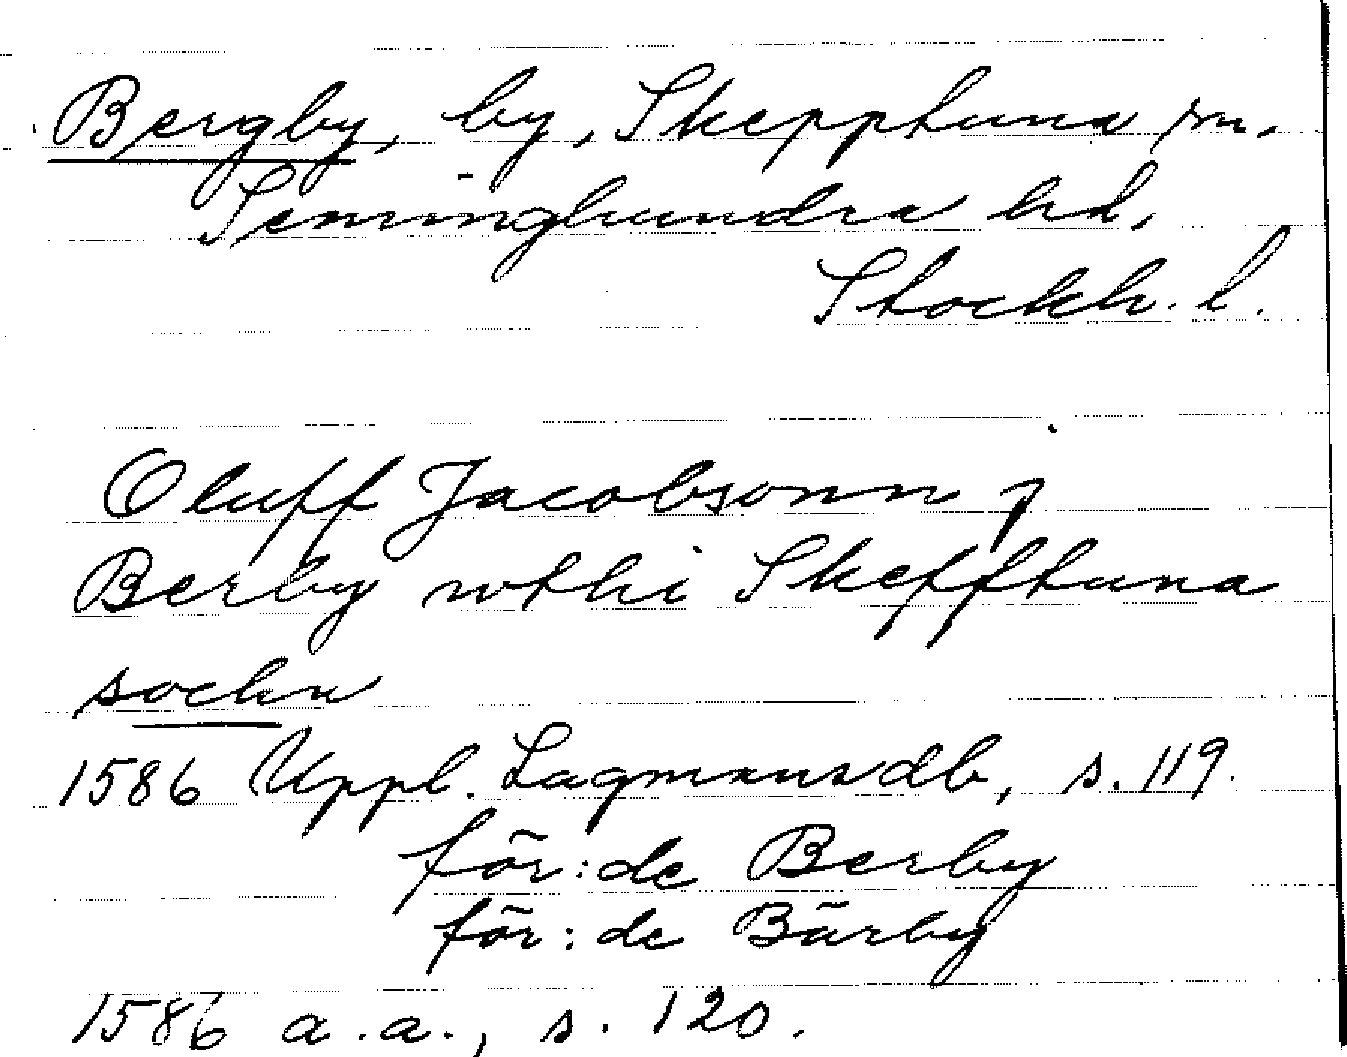 Bergby, by, Skepptuna sn.
Seminghundra hd.
Stockh. l.
Oluff Jacobsonn j
Berby wthi Skefftuna
sochn
1586 Uppl. Lagmansdb, s. 119.
för: de Berby
för: de Bärby
1586 a.a., s. 120.